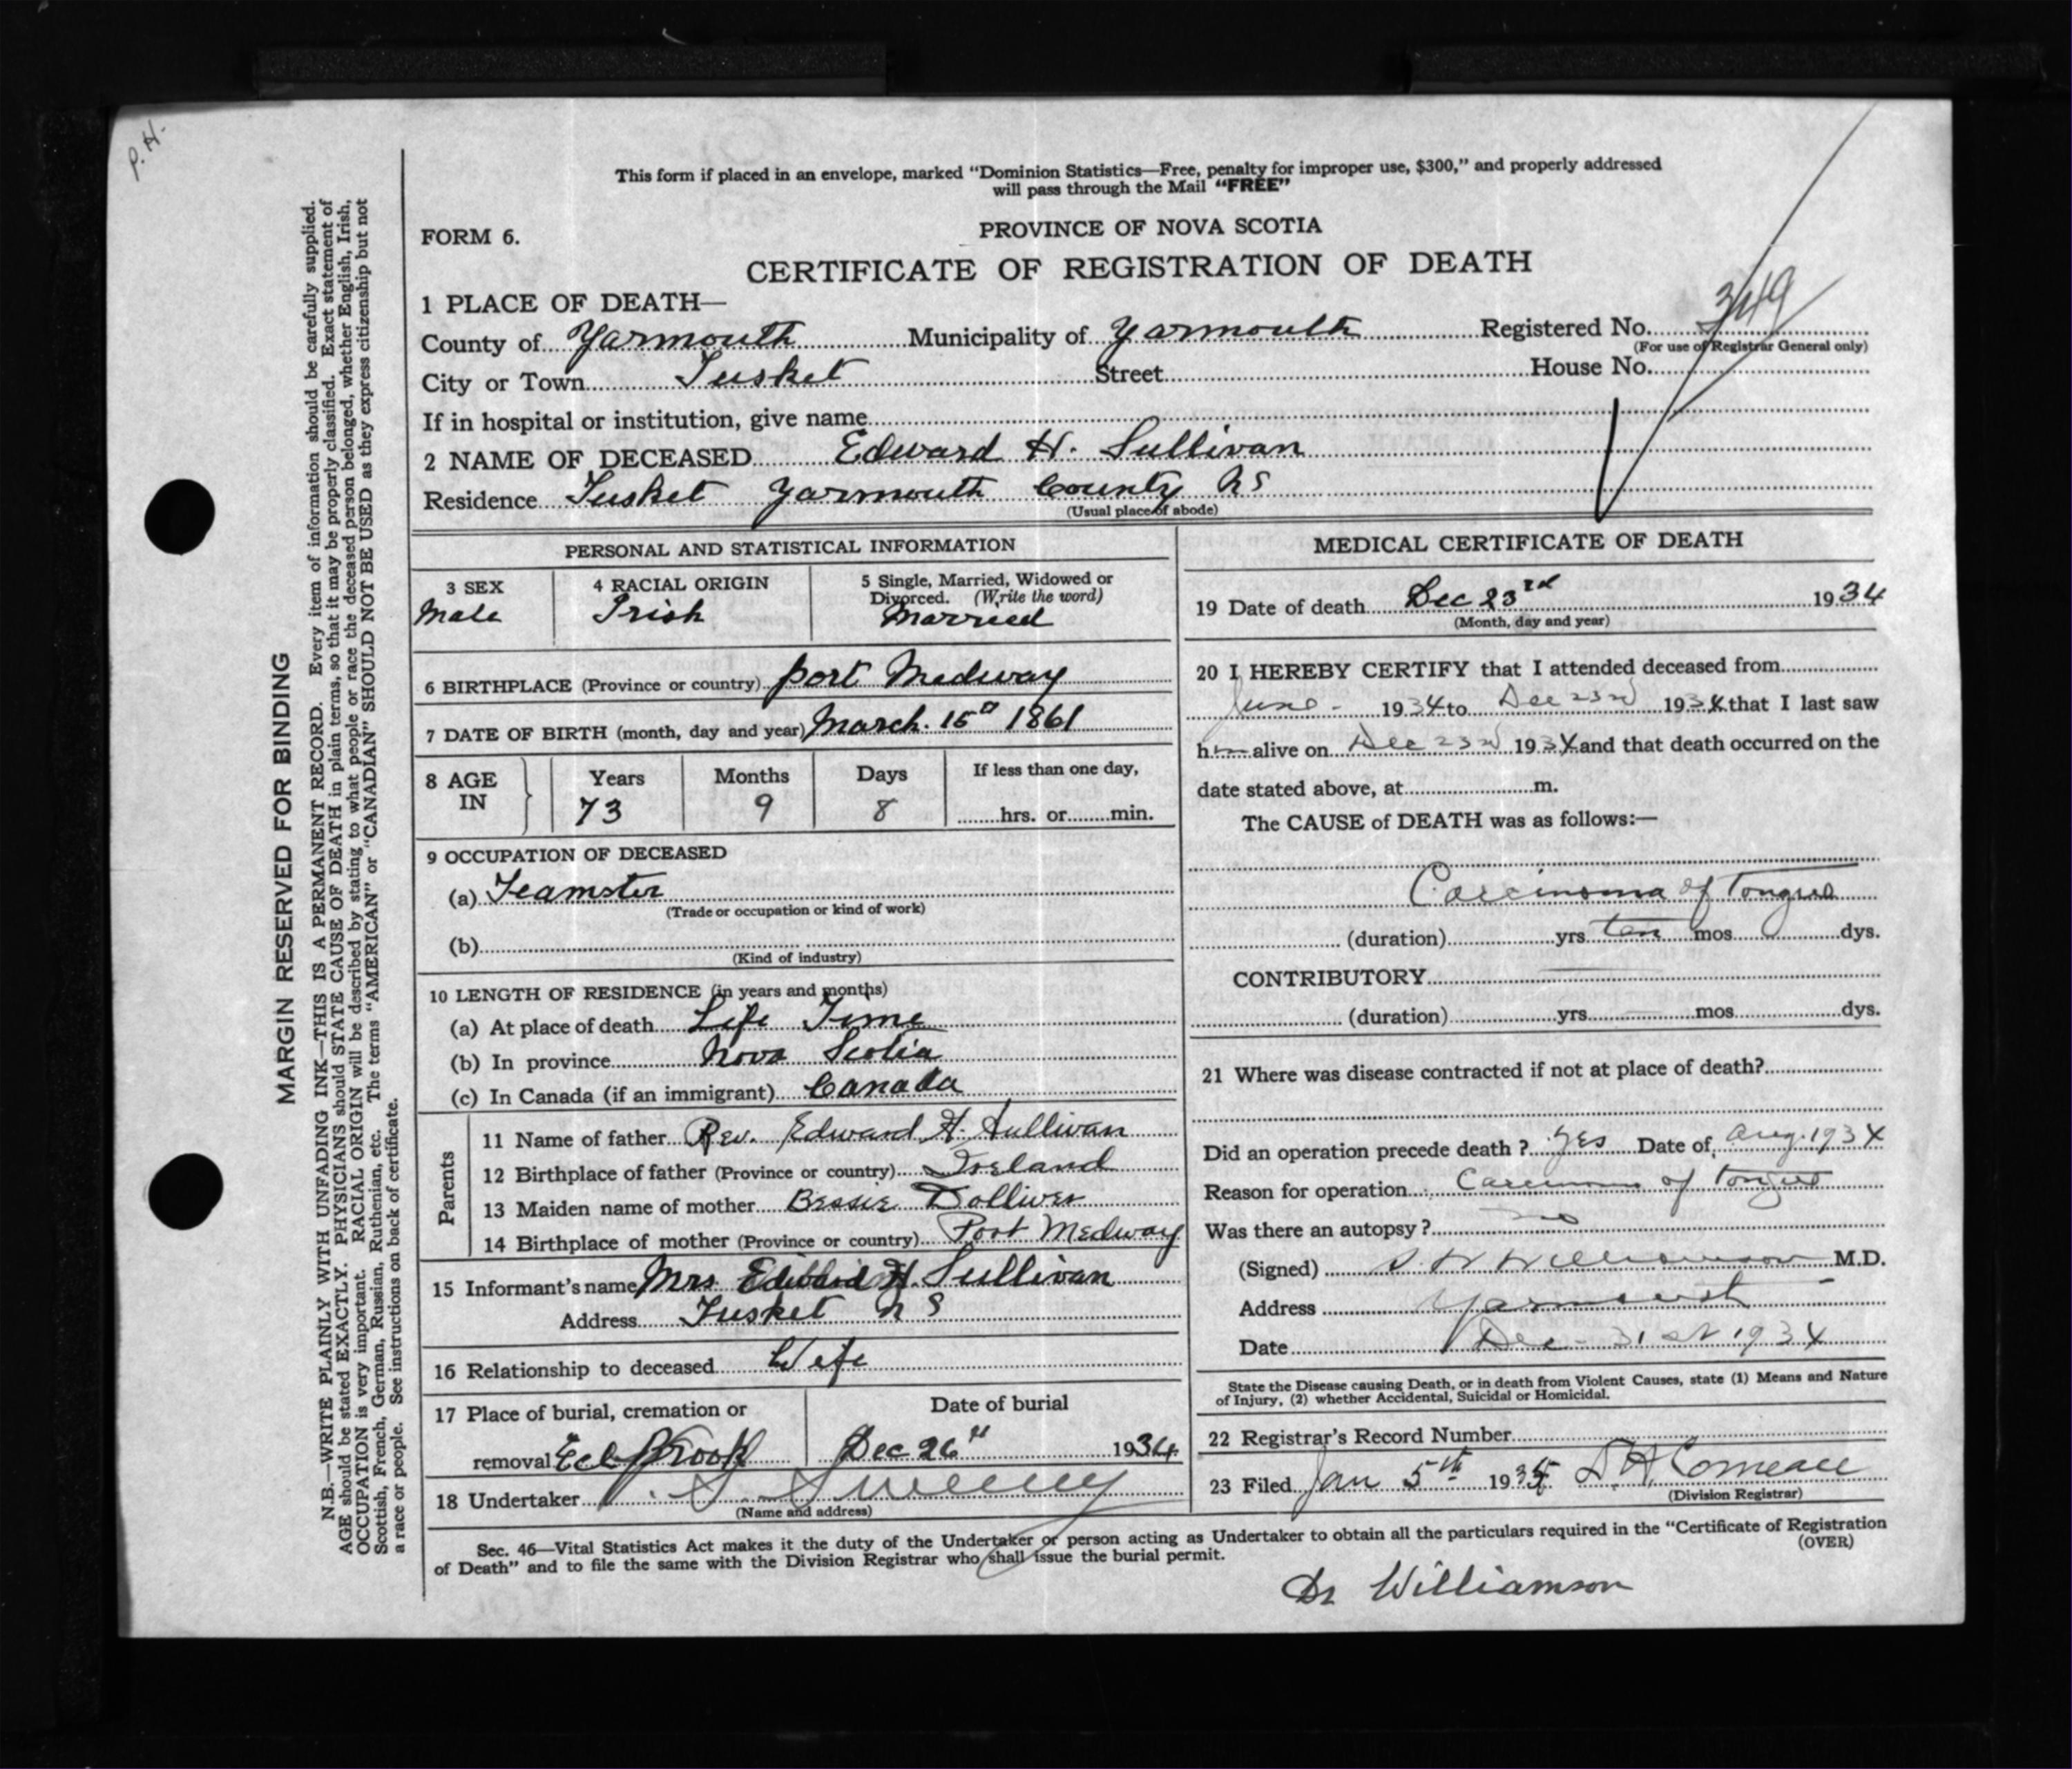 P. H.
This form if placed in an envelope, marked “Dominion Statistics—Free, penalty for improper use, $300,” and properly addressed
will pass through the Mail “FREE”
FORM 6.
PROVINCE OF NOVA SCOTIA
CERTIFICATE OF REGISTRATION OF DEATH
1 PLACE OF DEATH—
County of Yarmouth Municipality of Yarmouth Registered No. 349
(For use of Registrar General only)
City or Town Tusket Street House No.
If in hospital or institution, give name
2 NAME OF DECEASED Edward H. Sullivan
Residence Tusket Yarmouth County NS
(Usual place of abode)
PERSONAL AND STATISTICAL INFORMATION
3 SEX
Male
4 RACIAL ORIGIN
Irish
5 Single, Married, Widowed or
Divorced. (Write the word)
Married
6 BIRTHPLACE (Province or country) Port Medway
7 DATE OF BIRTH (month, day and year) March. 15 1861
8 AGE IN
Years Months Days If less than one day,
73 9 8 hrs. or min.
9 OCCUPATION OF DECEASED
(a) Teamster
(Trade or occupation or kind of work)
(b)
(Kind of industry)
10 LENGTH OF RESIDENCE (in years and months)
(a) At place of death Life Time
(b) In province Nova Scotia
(c) In Canada (if an immigrant) Canada
Parents
11 Name of father Rev. Edward H. Sullivan
12 Birthplace of father (Province or country) Ireland
13 Maiden name of mother Bessie Dolliver
14 Birthplace of mother (Province or country) Port Medway
15 Informant's name Mrs Edward H. Sullivan
Address Tusket NS
16 Relationship to deceased Wife
17 Place of burial, cremation or
removal Eel Brook
Date of burial
Dec 26th 1934
18 Undertaker Sweeny
(Name and address)
MEDICAL CERTIFICATE OF DEATH
19 Date of death Dec 23rd 1934
(Month, day and year)
20 I HEREBY CERTIFY that I attended deceased from
June 1934 to Dec 23rd 1934 that I last saw
him alive on Dec 23rd 1934 and that death occurred on the
date stated above, at m.
The CAUSE of DEATH was as follows:—
Carcinoma of Tongue
(duration) yrs ten mos dys.
CONTRIBUTORY
(duration) yrs mos dys.
21 Where was disease contracted if not at place of death?
Did an operation precede death? Yes Date of Aug. 1934
Reason for operation Carcinoma of Tongue
Was there an autopsy? no
(Signed) Williamson M.D.
Address Yarmouth
Date Dec - 31st 1934
State the Disease causing Death, or in death from Violent Causes, state (1) Means and Nature
of Injury, (2) whether Accidental, Suicidal or Homicidal.
22 Registrar's Record Number
23 Filed Jan 5th 1935 Comeau
(Division Registrar)
Sec. 46—Vital Statistics Act makes it the duty of the Undertaker or person acting as Undertaker to obtain all the particulars required in the “Certificate of Registration
of Death” and to file the same with the Division Registrar who shall issue the burial permit.
(OVER)
Dr Williamson
MARGIN RESERVED FOR BINDING
N.B.—WRITE PLAINLY WITH UNFADING INK—THIS IS A PERMANENT RECORD. Every item of information should be carefully supplied.
AGE should be stated EXACTLY. PHYSICIANS should STATE CAUSE OF DEATH in plain terms, so that it may be properly classified. Exact statement of
OCCUPATION is very important. RACIAL ORIGIN will be described by stating to what people or race the deceased person belonged, whether English, Irish,
Scottish, French, German, Russian, Ruthenian, etc. The terms “AMERICAN” or “CANADIAN” SHOULD NOT BE USED as they express citizenship but not
a race or people. See instructions on back of certificate.